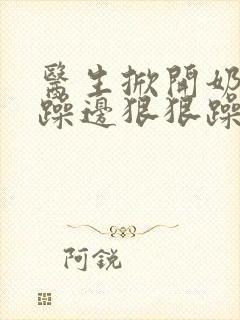 醫生掀開奶
躁邊狠狠躁
阿銳